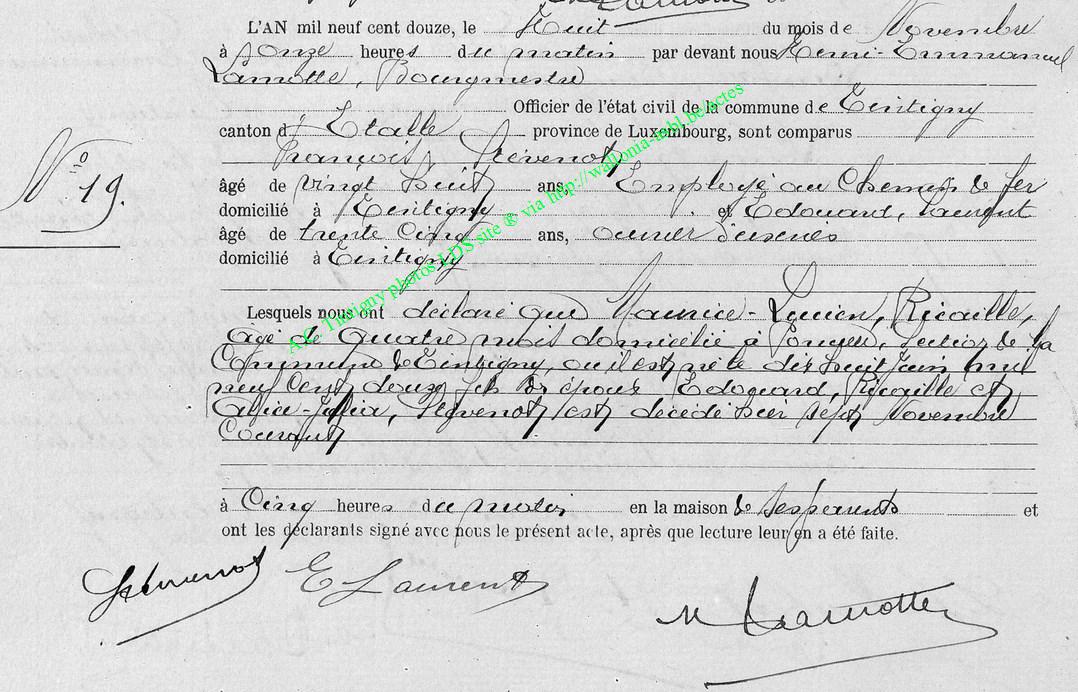 L'AN mil neuf cent douze, le Huit du mois de Novembre
à onze heures du matin par devant nous Henri-Emmanuel
Lamotte, Bourgmestre
Officier de l'état civil de la commune de Tintigny
canton d' Etalle province de Luxembourg, sont comparus
François,
N° 19.
âgé de vingt huit ans, Employé au Chemin de fer
domicilié à Tintigny et Edouard, Laurent
âgé de trente Cinq ans, ouvrier d'usines
domicilié à Tintigny
Lesquels nous ont déclaré que Maurice-Lucien, Ricaille,
agé de quatre mois domicilié à section de la
Commune de Tintigny, où il est né le dix huit Juin mil
neuf Cent douze, fils des époux Edouard, Ricaille et
Alice-Julia, est décédé hier sept Novembre
Courant
à Cinq heures du matin en la maison de ses parents et
ont les déclarants signé avec nous le présent acte, après que lecture leur en a été faite.
E Laurent
Lamotte
A.C. Tintigny photos LDS site ® via http://wallonia-nobl.be/actes